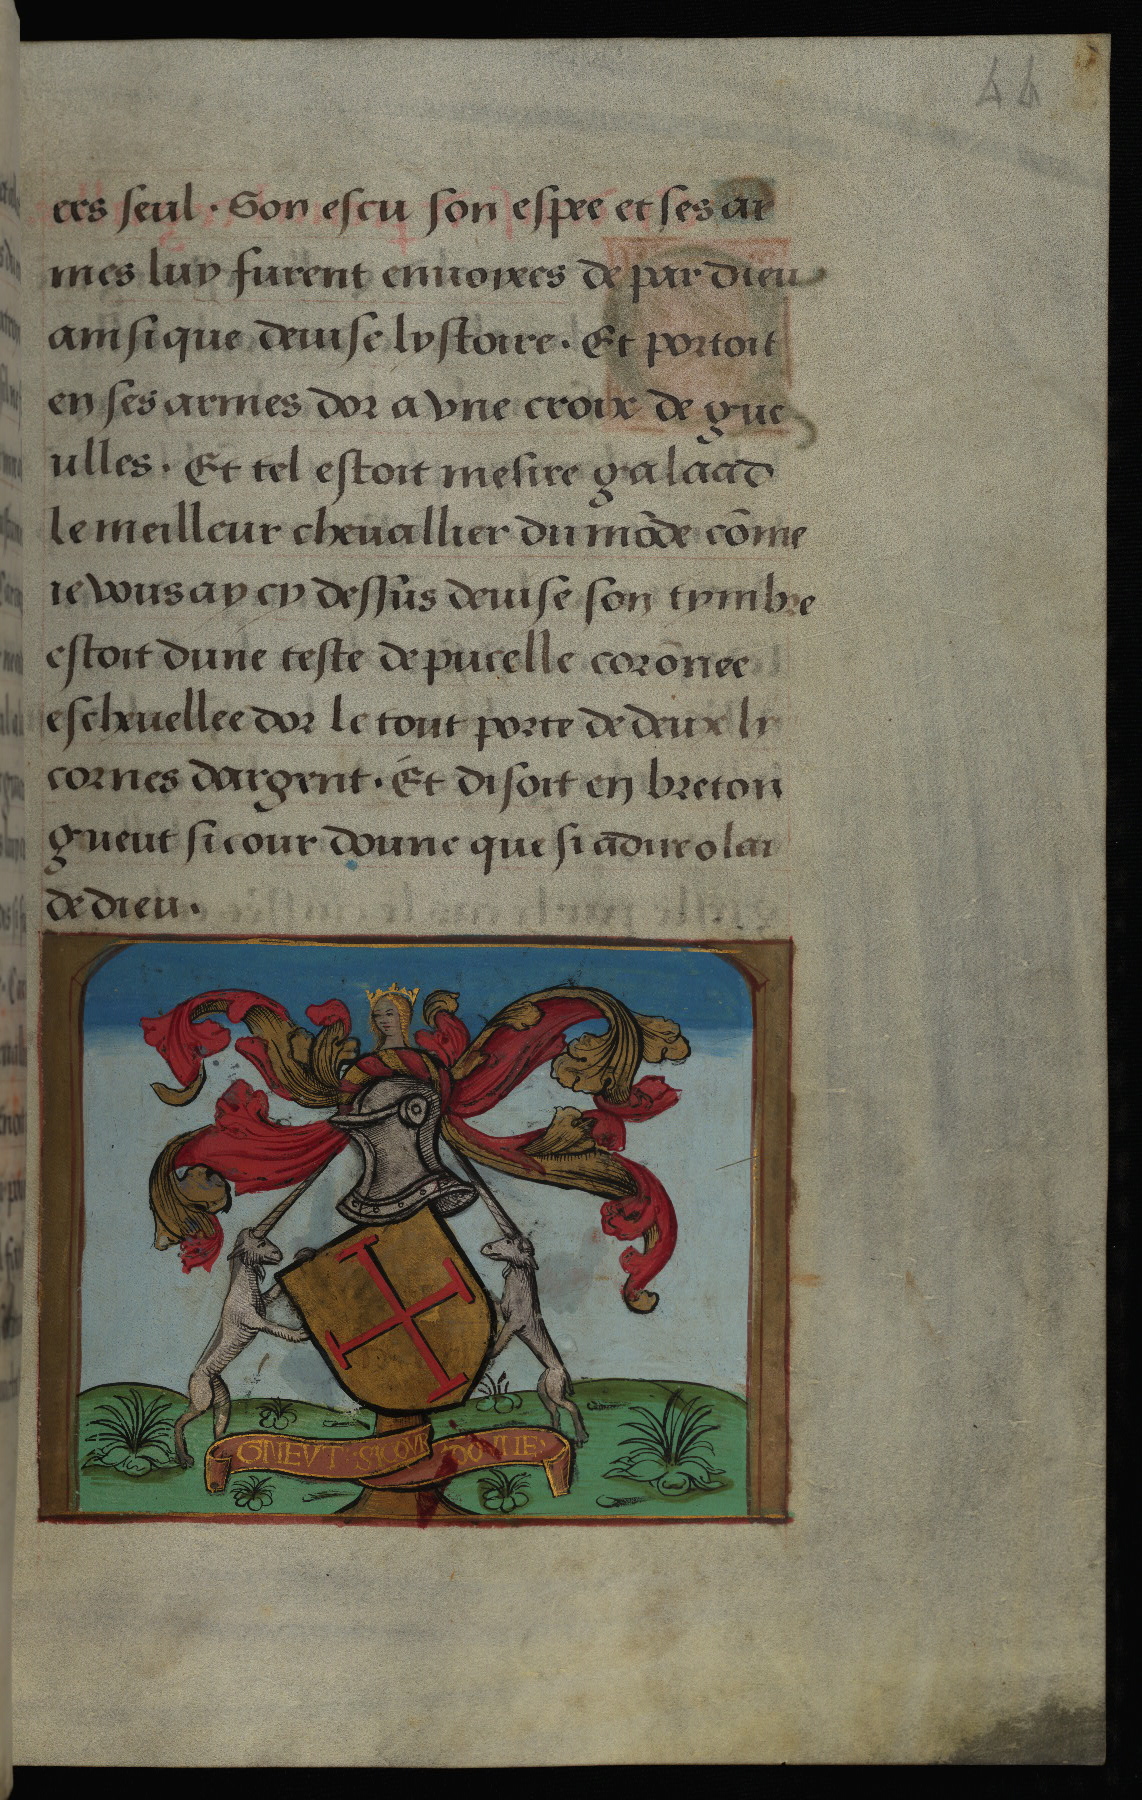 44
ers seul. Son escu son espee et ses ar
mes luy furent enuoyees de par dieu
ainsi que deuise lystoire. Et portoit
en ses armes dor a vne croix de gue
ulles. Et tel estoit mesire galaad
Le meilleur cheuallier du mōde cōme
ie vous ay cy dessus deuise son tymbre
estoit dune teste de pucelle corōnee
escheuellee dor le tout porte de deux li
cornes dargent. Et disoit en breton
gneut sicour doune que si adire o lai
de dieu.
GNEVT SICOVR DOVNE